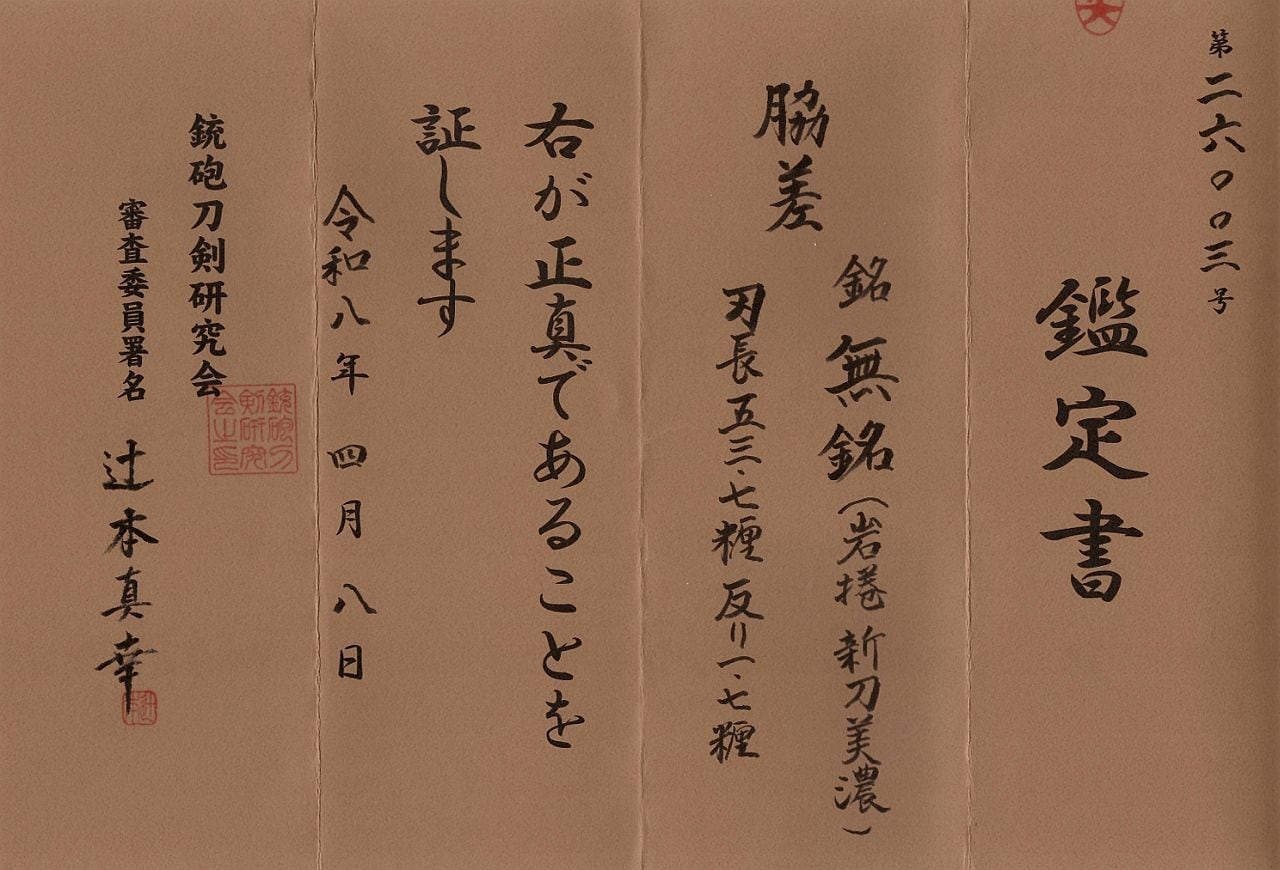 第二六〇〇三号
鑑定書
脇差
銘 無銘(岩捲 新刀美濃)
刃長五三.七糎 反リ一.七糎
右が正真であることを
証します
令和八年 四月 八日
銃砲刀剣研究会
銃砲刀剣研究会之印
審査委員署名 辻本真幸